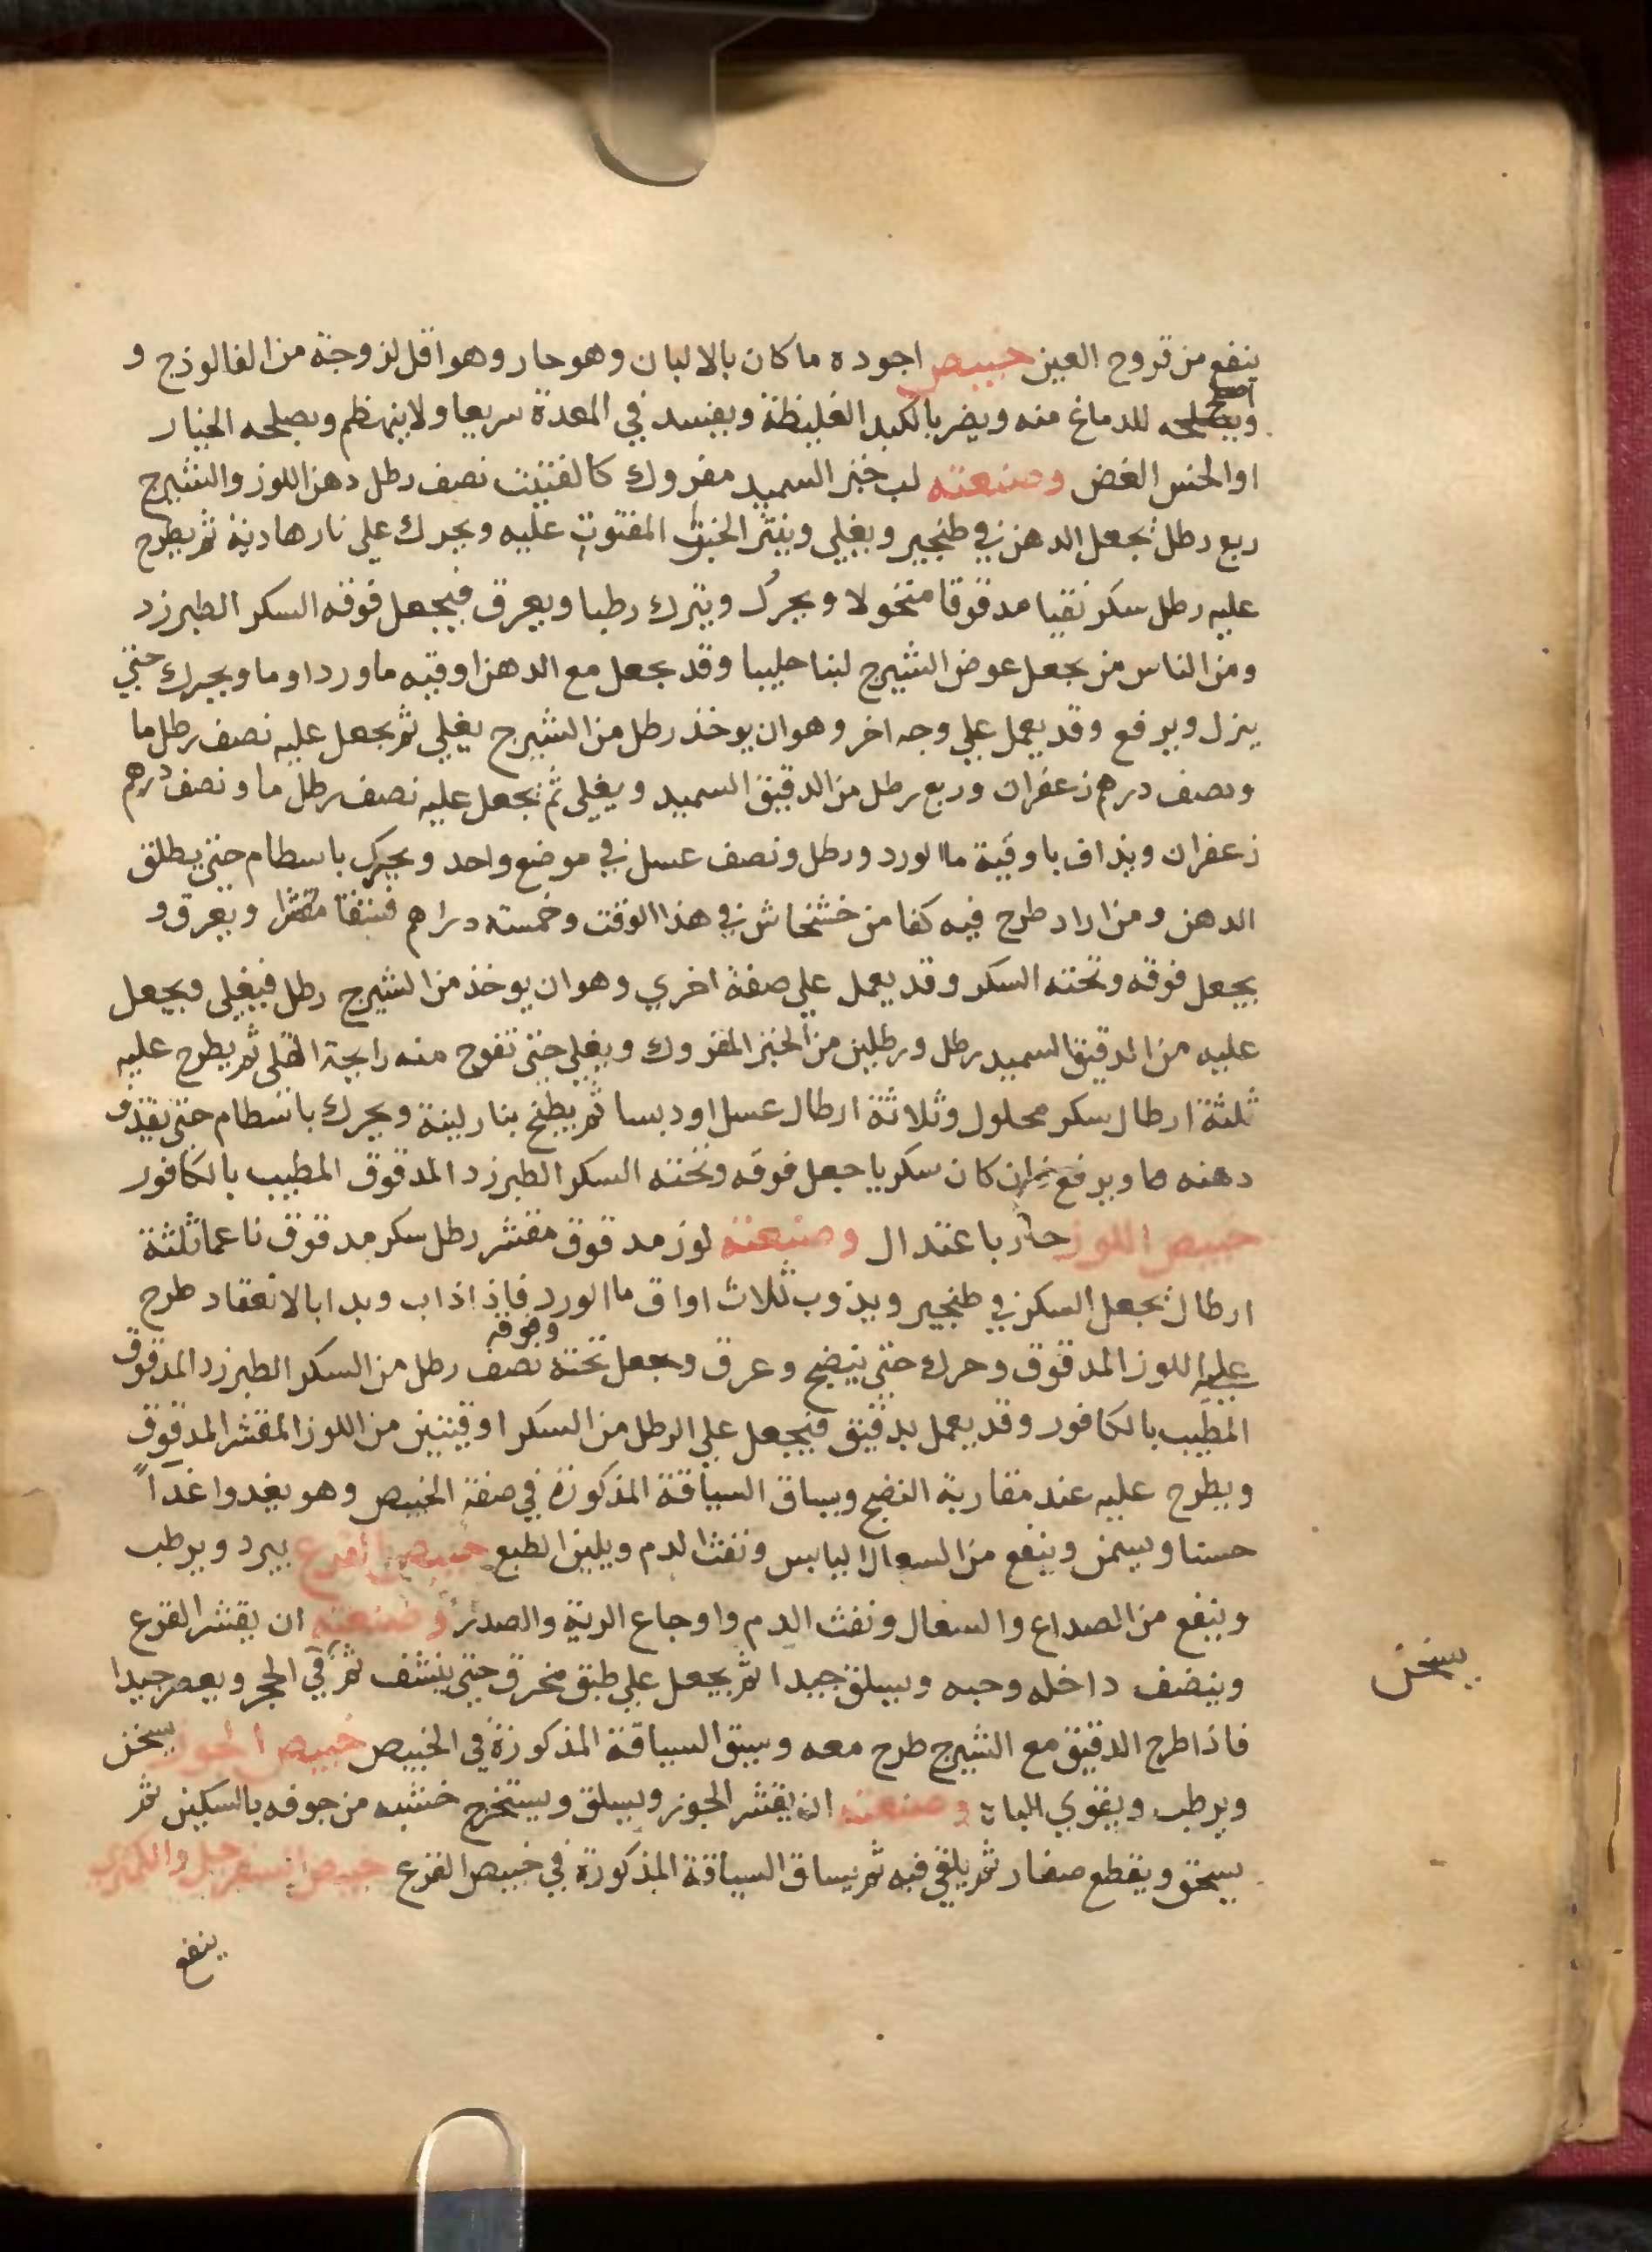 ينفع من قروح العين خبيص اجوده ما كان بالالبان وهو حار وهو اقل لزوجة من الفالوذج و
اصلح للدماغ منه ويضر بالكبد الغليظة ويفسد في المعدة سريعا ولا ينهظم ويصلحه الخيار
او الخس الغض وصنعته لب خبز السميد مفروك كالفتيت نصف رطل دهن اللوز والشيرج
ربع رطل يجعل الدهن في طنجير ويغلي وينثر الخبز المفتوت عليه ويحرك علي نار هادية ثم يطرح
عليه رطل سكر نقيا مدقوقا منخولا ويحرك ويترك رطبا ويعرق فيجعل فوقه السكر الطبرزد
ومن الناس من يجعل عوض الشيرج لبنا حليبا وقد يجعل مع الدهن اوقيه ماورد او ما ويحرك حتي
ينزل ويرفع وقد يعمل علي وجه اخر وهو ان يوخذ رطل من الشيرج يغلي ثم يجعل عليه نصف رطل ما
ونصف درهم زعفران وربع رطل من الدقيق السميد ويغلي ثم يجعل عليه نصف رطل ما ونصف درهم
زعفران ويذاف باوقية ما الورد ورطل ونصف عسل في موضع واحد ويحرك باسطام حتي يطلق
الدهن ومن اراد طرح فيه كفا من خشخاش في هذا الوقت وخمسته دراهم فستقا مقشرا ويعرق و
يجعل فوقه وتحته السكر وقد يعمل علي صفة اخري وهو ان يوخذ من الشيرج رطل فيغلي ويجعل
عليه من الدقيق السميد رطل ورطلين من الخبز المفروك ويغلي حتي تفوح منه رايحة القلي ثم يطرح عليه
ثلثة ارطال سكر محلول وثلاثة ارطال عسل او دبسا ثم يطبخ بنار لينة ويحرك باسطام حتي يقذف
دهنه ما ويرفع فان كان سكريا جعل فوقه وتحته السكر الطبرزد المدقوق المطيب بالكافور
خبيص اللوز حار باعتدال وصنعته لوز مدقوق مقشر رطل سكر مدقوق ناعما ثلثة
ارطال يجعل السكر في طنجير ويذوب ثلاث اواق ما الورد فاذا ذاب وبدا بالانعقاد طرح
عليه اللوز المدقوق وحرك حتي ينضج وعرق وجعل تحته وفوقه نصف رطل من السكر الطبرزد المدقوق
المطيب بالكافور وقد يعمل بدقيق فيجعل علي الرطل من السكر اوقيتين من اللوز المقشر المدقوق
ويطرح عليه عند مقاربة النضج ويساق السياقة المذكورة في صفة الخبيص وهو يغدوا غداً
حسنا ويسمن وينفع من السعال اليابس ونفث الدم ويلين الطبع خبيص القرع يبرد ويرطب
وينفع من الصداع والسعال ونفث الدم واوجاع الرية والصدر وصنعته ان يقشر القرع
وينضف داخله وحبه ويسلق جيدا ثم يجعل علي طبق مخرق حتي ينشف ثم في الحجر ويعصر جيدا
يسخن
فاذا طرح الدقيق مع الشيرج طرح معه وسيق السياقة المذكورة في الخبيص خبيص الجوز يسخن
ويرطب ويقوي الباه وصنعته ان يقشر الجوز ويسلق ويستخرج خشبه من جوفه بالسكين ثم
يسحق ويقطع صغار ثم يلقي فيه ثم يساق السياقة المذكورة في خبيص القرع خبيص السفرجل والكمثري
ينفع